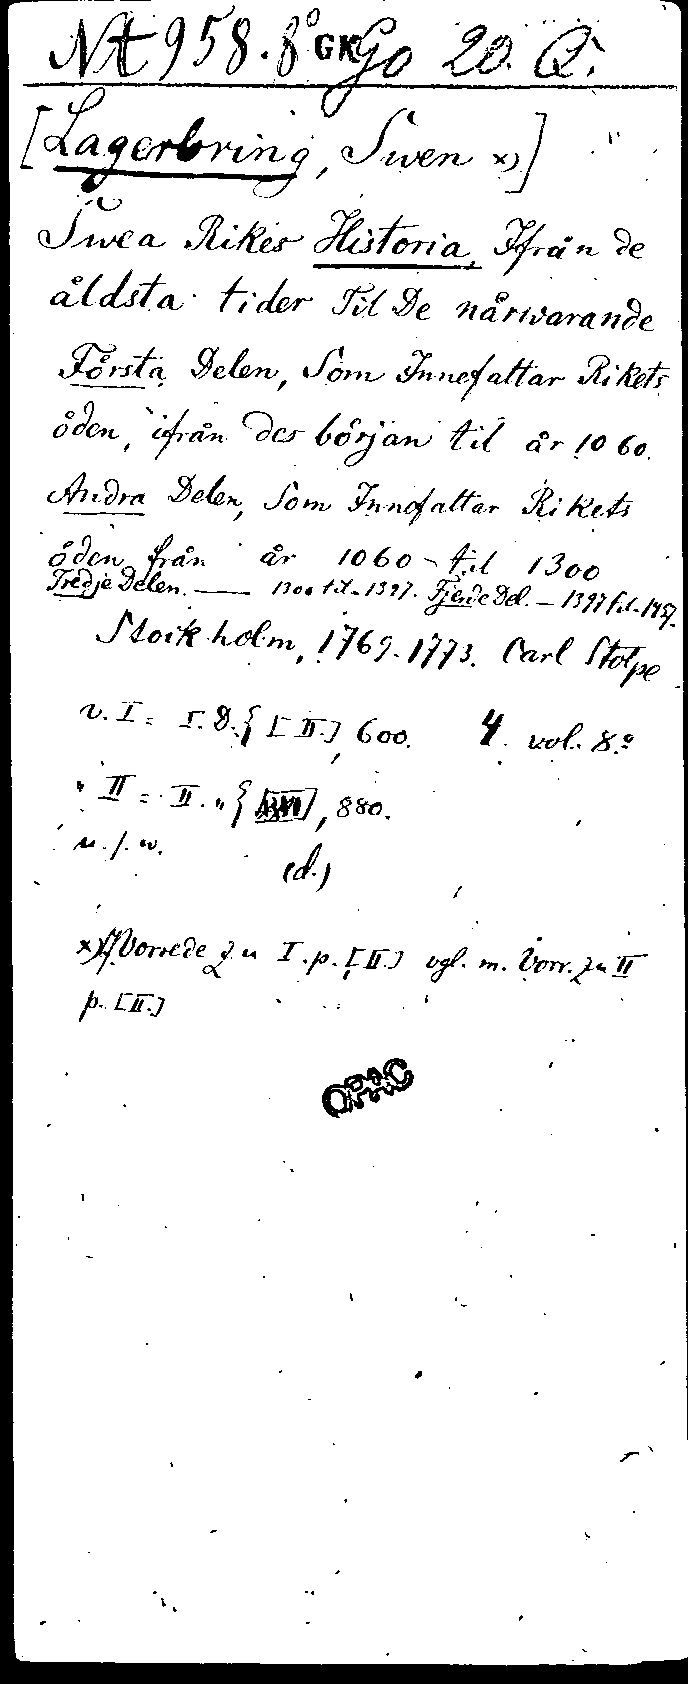 Nt 958. 8° GK Go 20. Q.
[Lagerbring, Swen x)]
Swea Rikes Historia, Ifrån de
åldsta tider Til De nårwarande
Första Delen, Som Innefattar Rikets
öden, ifrån des början til år 1060.
Andra Delen, Som Innefattar Rikets
öden från år 1060 - til 1300
Tredje Delen. — 1300 til - 1397. Fjerde Del. — 1397 til - 1457.
Stockholm, 1769-1773. Carl Stolpe
v. I = I. D. { [II.], 600. 4 vol. 8.°
" II = II. " { , 880.
u. s. w.
(d.)
x) Vorrede zu I. p. [II.] vgl. m. Vorr. zu II
p. [II.]
OPAC